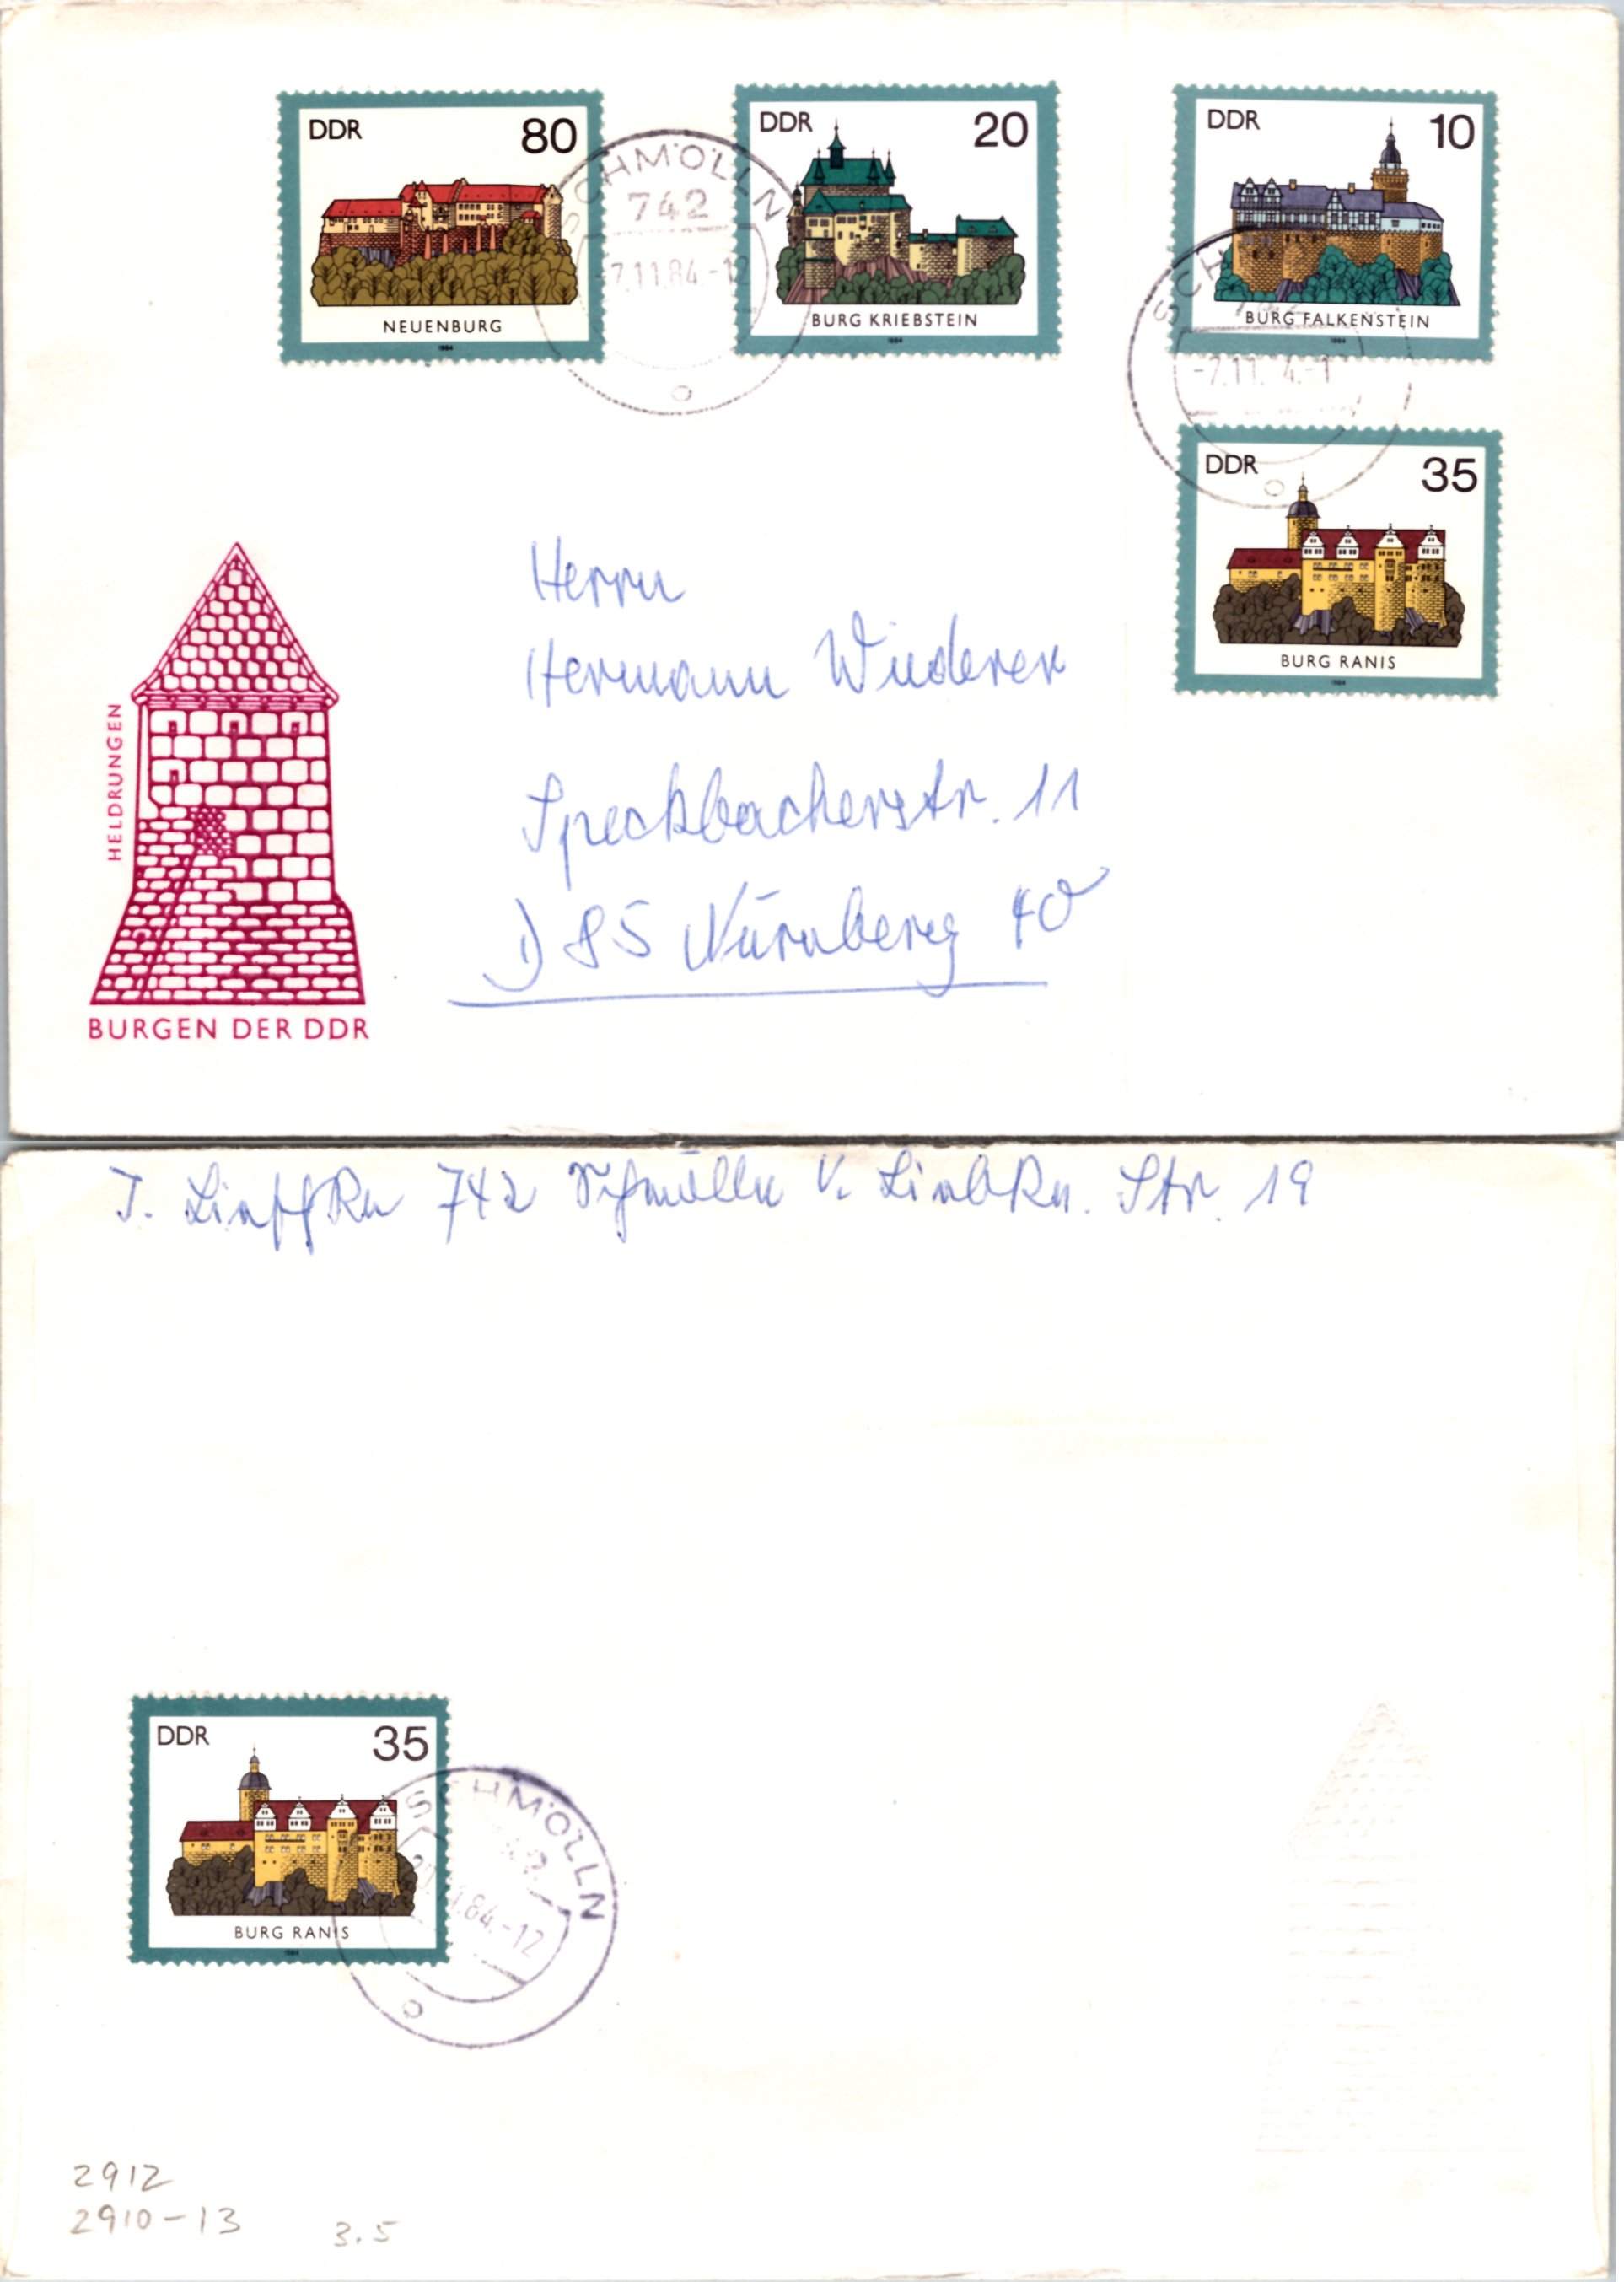 DDR 80
NEUENBURG
1984
DDR 20
BURG KRIEBSTEIN
1984
DDR 10
BURG FALKENSTEIN
1984
SCHMÖLLN
742
-7.11.84.-12
SCH
-7.11. 4.-1
DDR 35
BURG RANIS
1984
HELDRUNGEN
BURGEN DER DDR
Herrn
Hermann Wiederer
Speckbacherstr. 11
D 85 Nürnberg 40
J. 742 Schmölln Str. 19
DDR 35
BURG RANIS
1984
SCHMÖLLN
84.-12
2912
2910-13
3.5